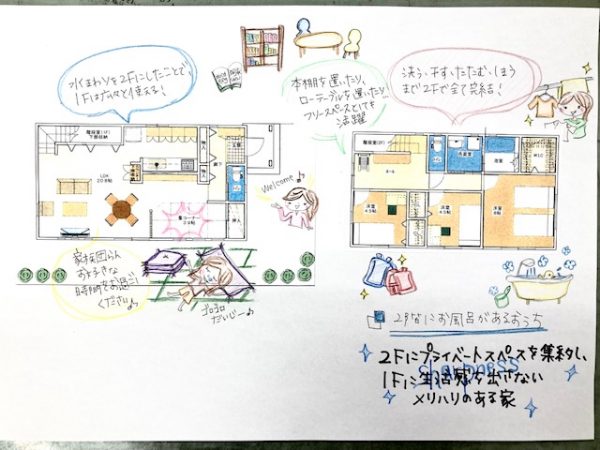 水まわりを2Fにしたことで、
1Fは広々と使える!
本棚を置いたり、
ローテーブルを置いたり…
フリースペースとしても
活躍
洗う、干す、たたむ、しまう
まで2Fで全て完結!
階段室(1F)
下部収納
LDK
20.8帖
畳コーナー
押入
玄関
廊下
Welcome♪
家族団らん
お好きな
時間をお過ごし
ください♪
ゴロゴロ
だいじー♪
階段室(2F)
ホール
洗面室
浴室
W.I.C
洋室
4.5帖
洋室
4.5帖
洋室
2階なにお風呂があるおうち
2Fにプライベートスペースを集約し、
1Fに生活感を出さない
メリハリのある家
sharpness